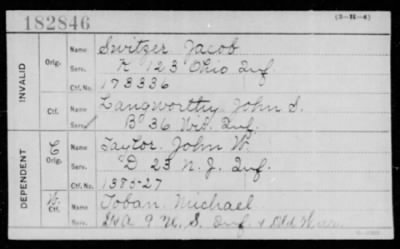 182846
(3-H-4)
INVALID
Orig. Name Switzer Jacob
Serv. K 123 Ohio Inf.
Ctf. No. 173336
Ctf. Name Langworthy John S.
Serv. B 36 Wis. Inf.
DEPENDENT
C Orig. Name Taylor, John W.
Serv. D 23 N. J. Inf.
Ctf. No. 1385-27
W. Ctf. Name Toban Michael
9 U. S. Inf & Old War